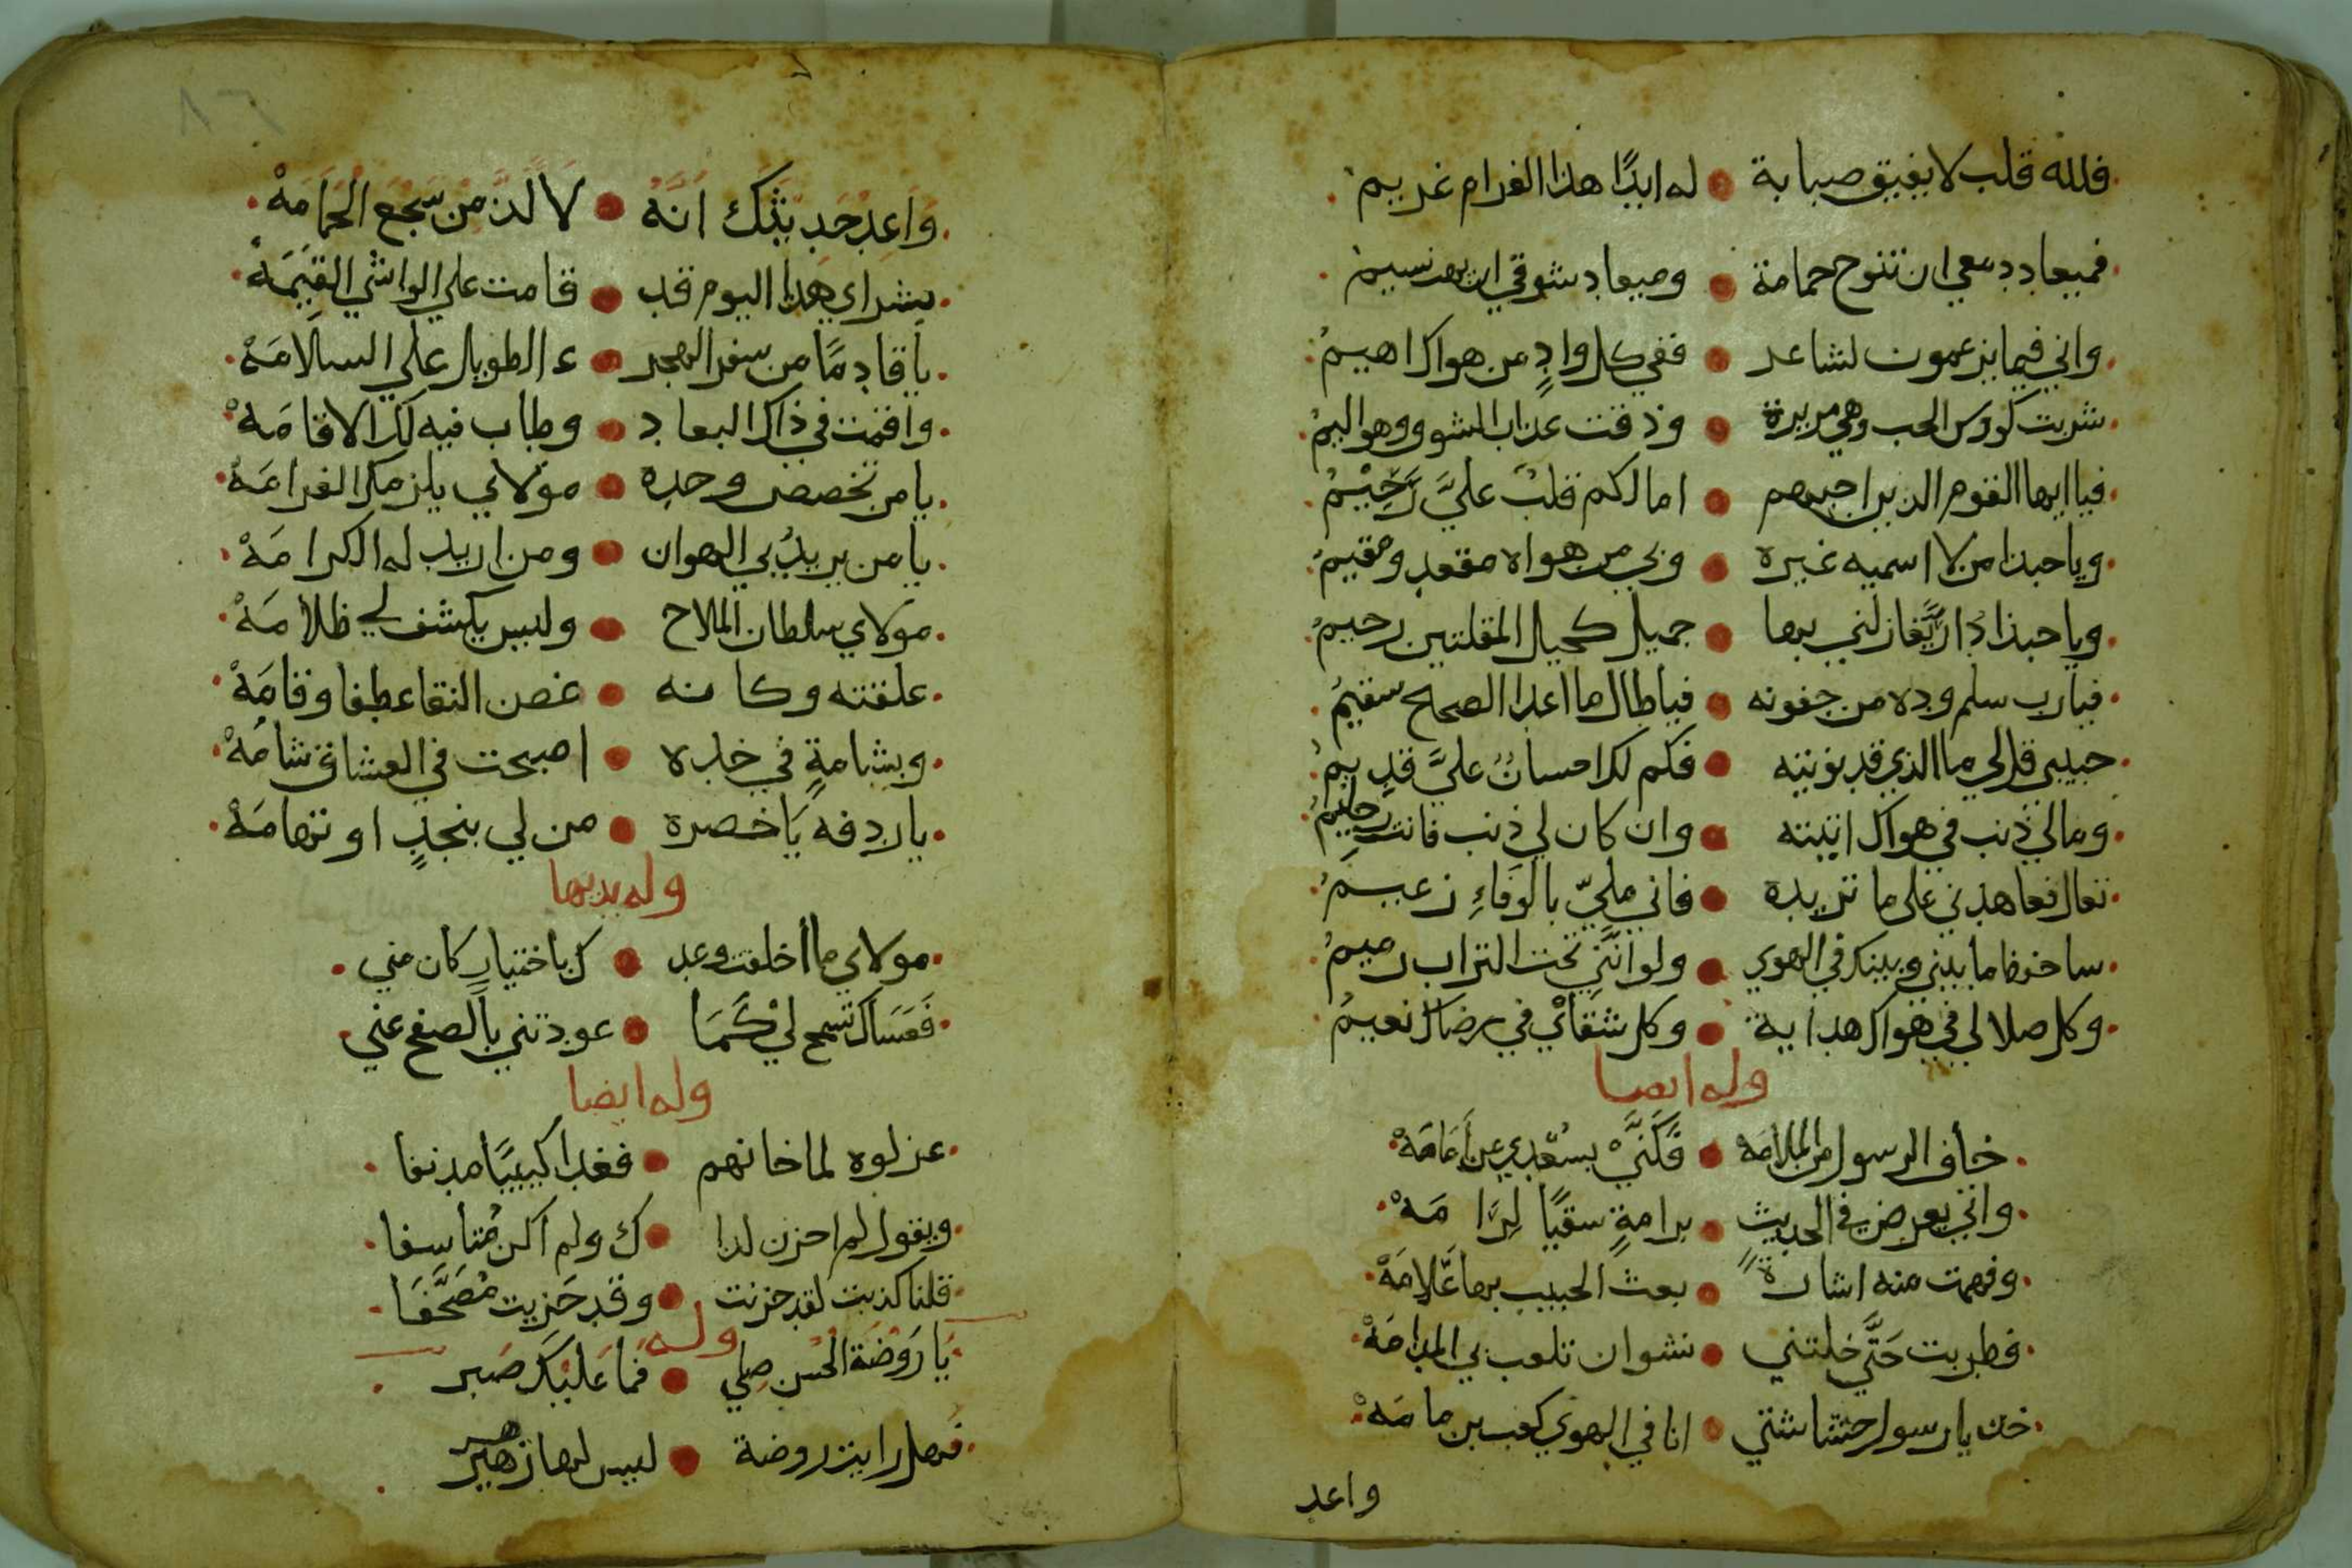 فلله قلب لا يفيق صبابة • له ابدًا هذا الغرام غريم
فميعاد دمعي ان تنوح حمامة • وميعاد شوقي ان يهب نسيم
واني فيما يزعمون لشاعر • ففي كل وادٍ من هواك اهيمُ
شربت كووس الحب وهي مريرة • وذقت عذاب الشوق وهو اليمُ
فيا ايها القوم الذين احبهم • اما لكم قلبٌ عليَّ رَحِيْمُ
ويا حبذا من لا اسميه غيره • وبي من هواه مقعد ومقيمُ
ويا حبذا دَارٌ يُغازلني بها • جميل كحيل المقلتين رحيمُ
فيارب سلم وده من جفونه • فيا طال ما اعدا الصحاح سقيمُ
حبيبي قل لي ما الذي قد نويته • فكم لك احسانٌ عليَّ قديمُ
ومالي ذنب في هواك اتيته • وان كان لي ذنب فانت حليمُ
تعال فعاهدني على ما تريده • فاني مليّ بالوَفاءِ زعيمُ
ساحفظ ما بيني وبينك في الهوي • ولو انَّني تحت التراب رميمُ
وكل ضلالي في هواك هداية • وكل شقائي في رضاك نعيمُ
وله ايضا
خاف الرسول من الملامَهْ • فَكَنَّىْ بسُعْدي عن أمَامَهْ
واتي يعرض في الحديثِ • برامةٍ سقيًا لِرَامَهْ
وفهمت منه اشارةً • بعث الحبيب بها عَلامَهْ
فطربت حَتَّي خلتني • نشوان تلعب بي المدامَهْ
خذ يا رسول حشاشتي • انا في الهوي كعب بن مامَهْ
واعد
٨٦
وَاعِدْ حَدِيثَكَ انَّهُ • لاَلَذُّ مِنْ سَجْعِ الحَمَامَهْ
بشراي هذا اليوم قد • قامت علي الواشي القيَمَهْ
يا قادِمًا من سفر الهجر • ء الطويل علي السلامَهْ
واقمت في ذاك البعاد • وطاب فيه لك الاقامَهْ
يا من تخصص وحده • مولاي يلزمك الغرامَهْ
يا من يريدُ بي الهوان • ومن اريد له الكرامَهْ
مولاي سلطان الملاح • وليس يكشف لي ظلامَهْ
علقته وكانه • غصن النقا عطفا وقامَهْ
وبشامةٍ في خده • اصبحت في العشاق شامَهْ
يا ردفه يَا خصره • من لي بنجدٍ او تهامَهْ
وله بديها
مولاي ما أخلفت وعد • ك باختيارٍ كان مني
فَعَسَاكَ تسمح لِيْ كَمَا • عودتني بالصفح عني
وله ايضا
عزلوه لما خانهم • فغدا كييبًا مدنفا
ويقول لم احزن لذا • ك ولم اكن مُتأسِفا
قلنا كذبت لقد حزنت • وقد حَزِيت مُصَحَّفَا
وله
يَا رَوْضَةَ الحُسنِ صِلي • فَمَا عَلَيْكَ صَبر
فهل رايت روضة • ليس لها زهير